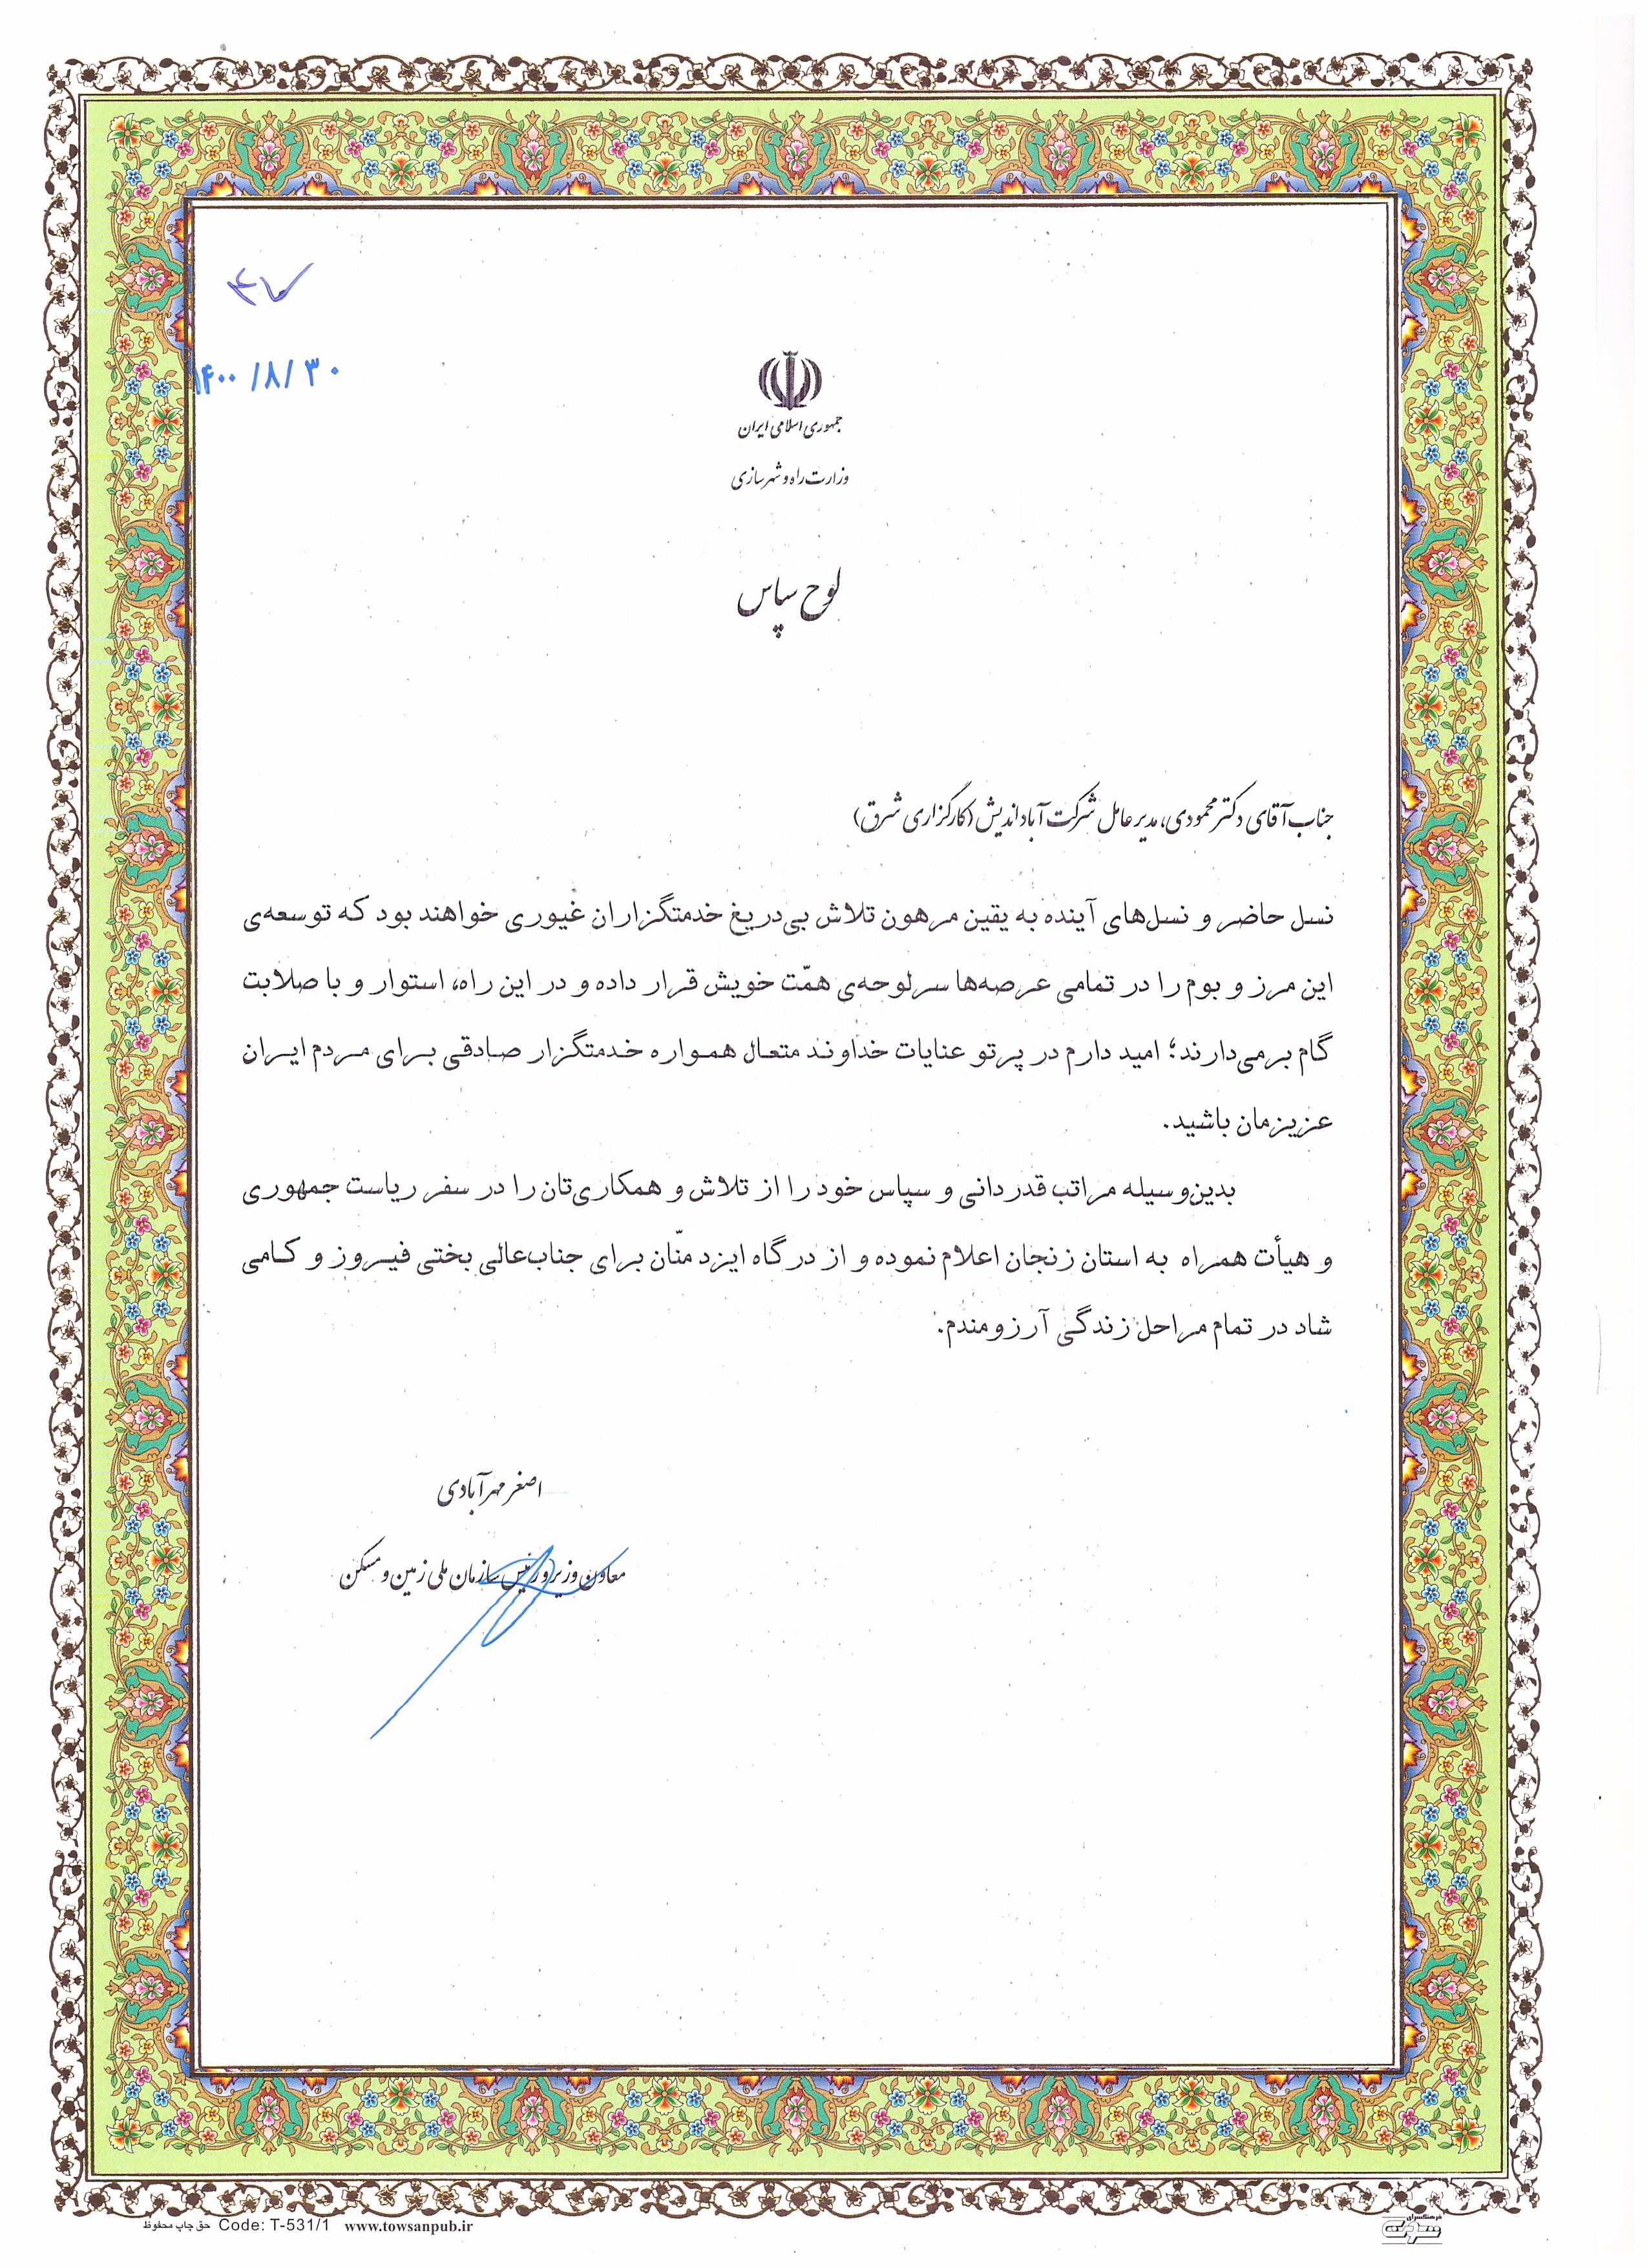 ۱۴۰۰/۸/۳۰
جمهوری اسلامی ایران
وزارت راه و شهرسازی
لوح سپاس
جناب آقای دکتر محمودی، مدیر عامل شرکت آباد اندیش (کارگزاری شرق)
نسل حاضر و نسل‌های آینده به یقین مرهون تلاش بی‌دریغ خدمتگزاران غیوری خواهند بود که توسعه‌ی
این مرز و بوم را در تمامی عرصه‌ها سرلوحه‌ی همّت خویش قرار داده و در این راه، استوار و با صلابت
گام برمی‌دارند؛ امید دارم در پرتو عنایات خداوند متعال همواره خدمتگزار صادقی برای مردم ایران
عزیزمان باشید.
بدین‌وسیله مراتب قدردانی و سپاس خود را از تلاش و همکاری‌تان را در سفر ریاست جمهوری
و هیأت همراه به استان زنجان اعلام نموده و از درگاه ایزد منّان برای جناب‌عالی بختی فیروز و کامی
شاد در تمام مراحل زندگی آرزومندم.
اصغر مهرآبادی
معاون وزیر و رئیس سازمان ملی زمین و مسکن
حق چاپ محفوظ Code: T-531/1 www.towsanpub.ir